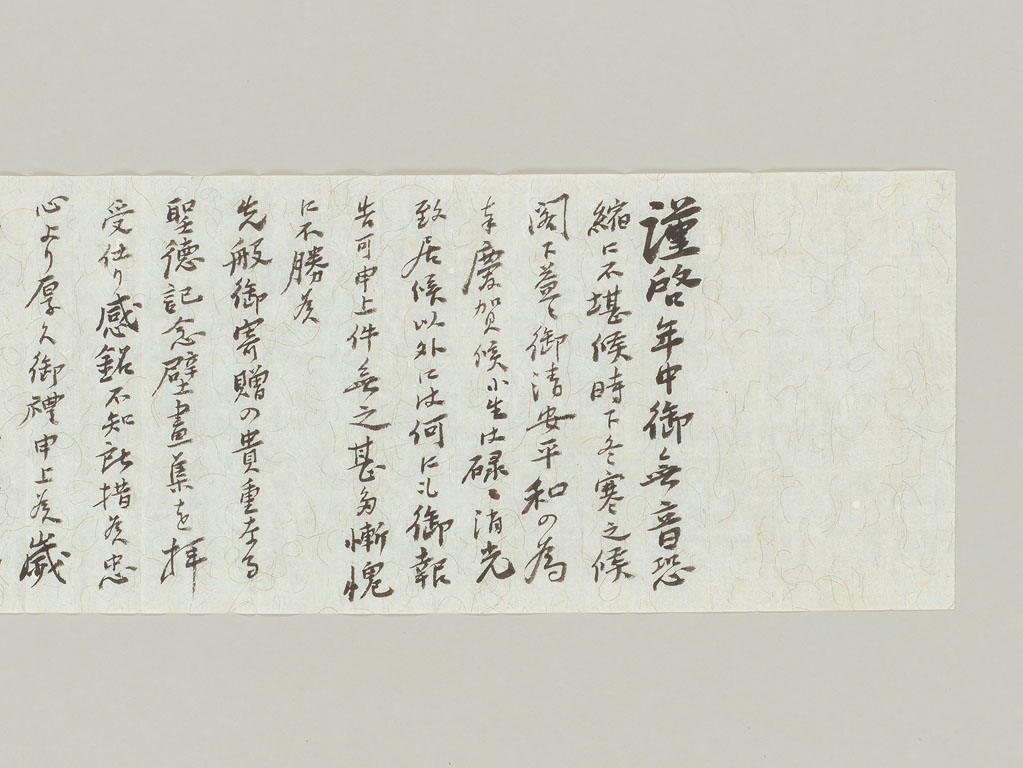 謹啓年中御無音恐
縮に不堪候時下冬寒之候
閣下益々御清安平和の為
奉慶賀候小生は碌々消光
致居候以外には何にも御報
告可申上件無之甚多慚愧
に不勝候
先般御寄贈の貴重なる
聖德記念壁畫集を拝
受仕り感銘不知所措候忠
心より厚く御禮申上候歳